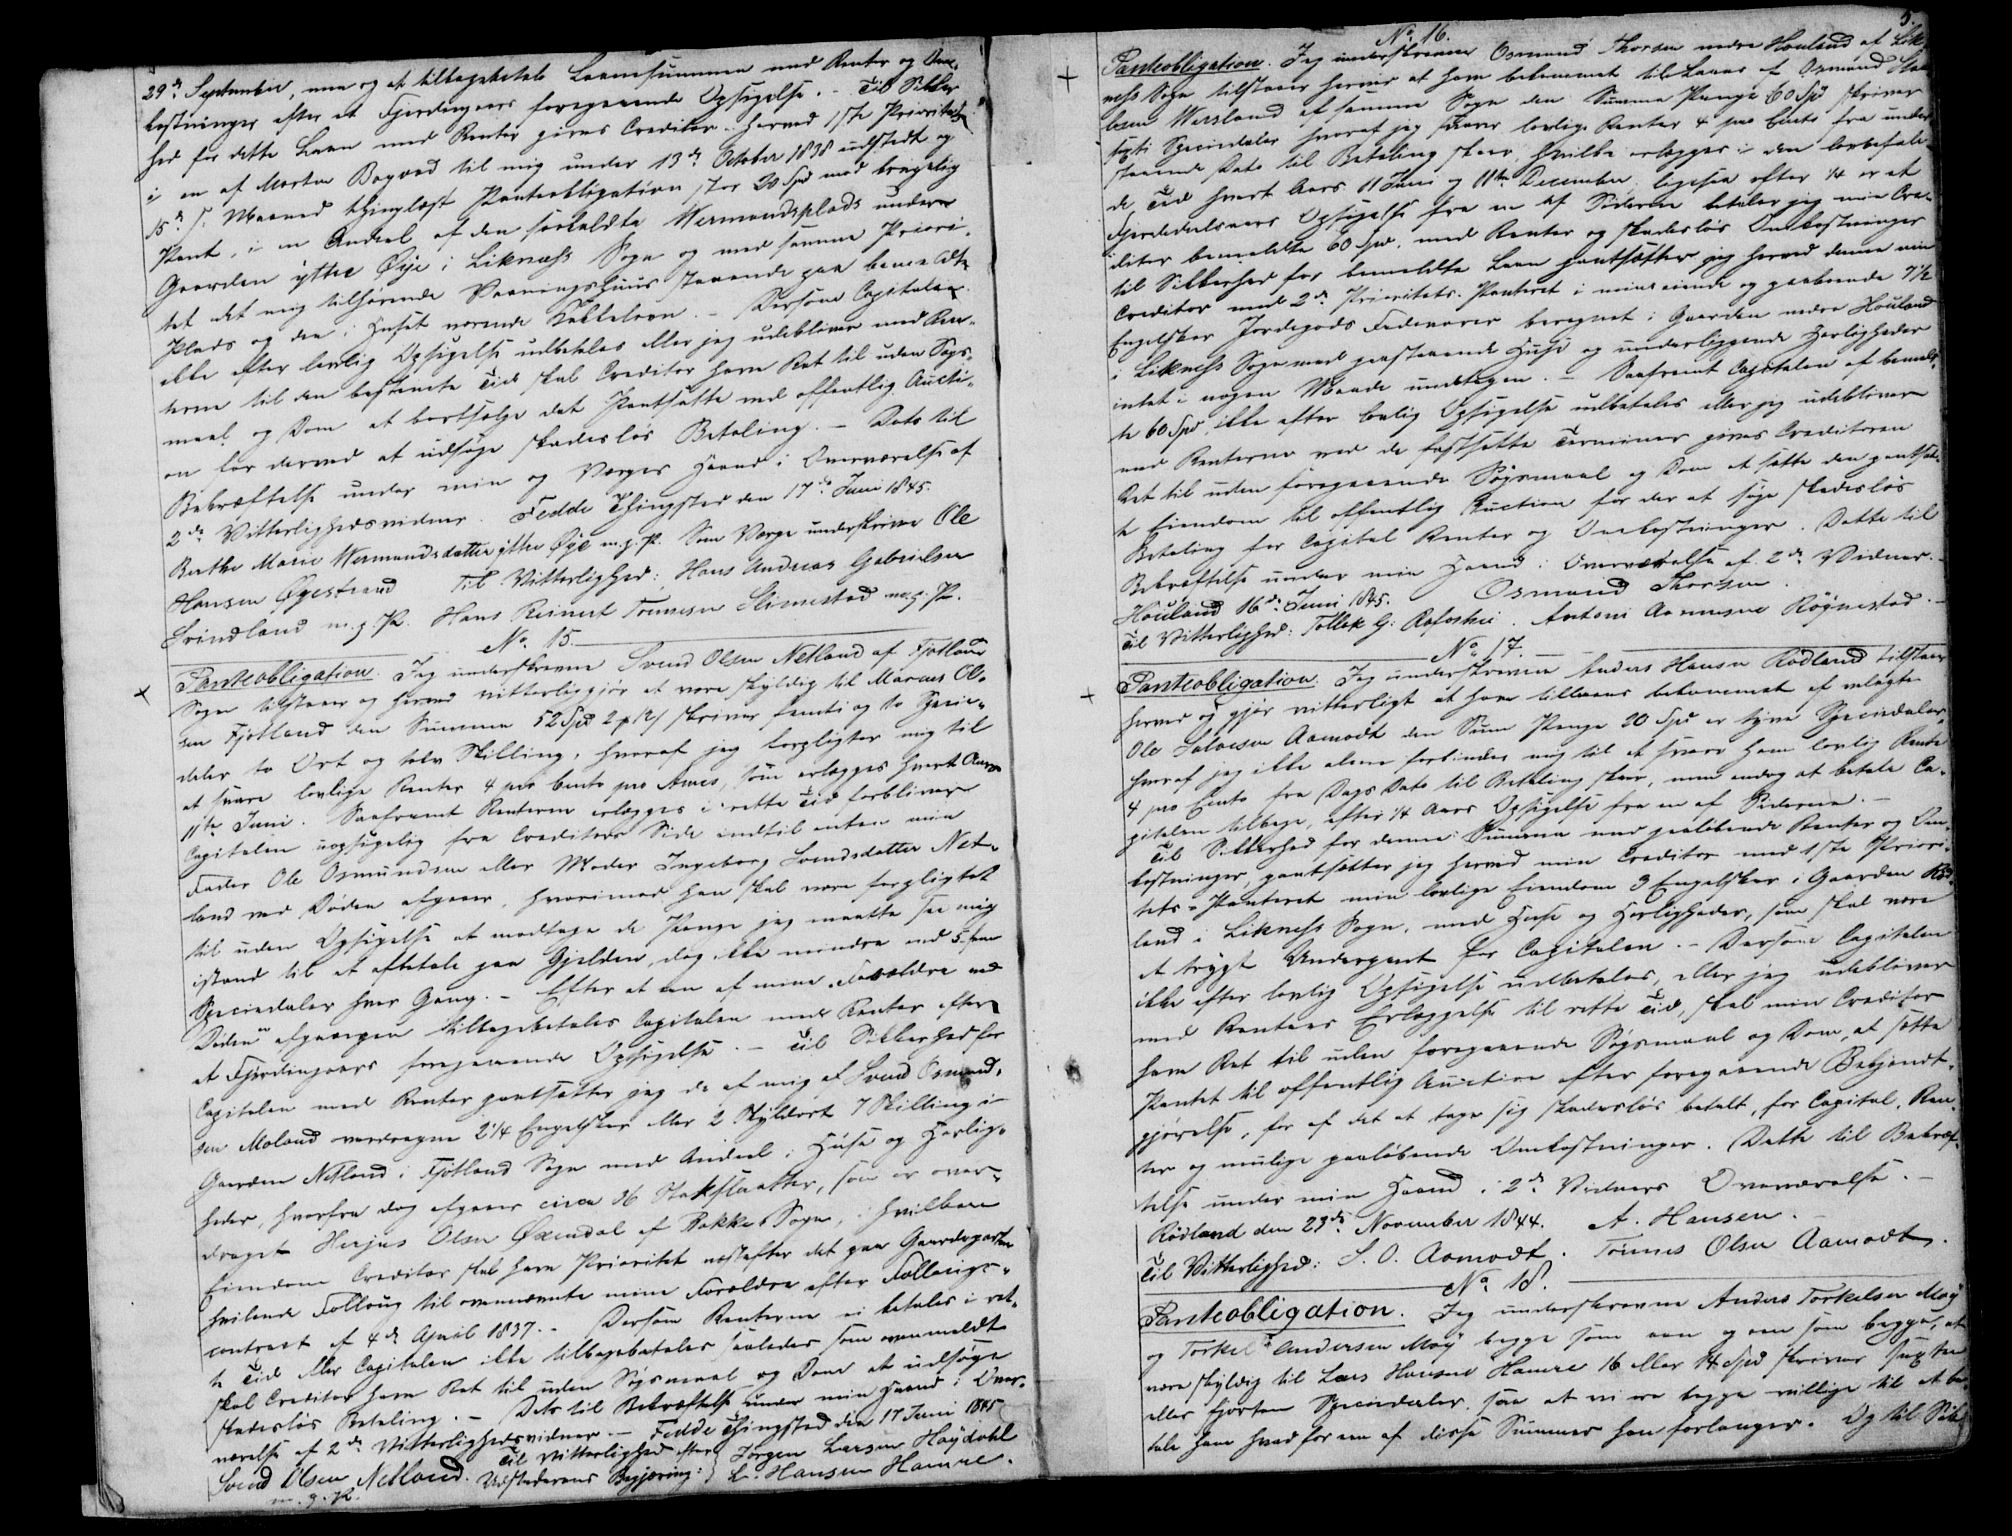 29de September, men og at tilbagebetale Laanesummen med Renter og Om-
kostninger efter et Fjerdingaars foregaaende Opsigelse. – Til Sikker-
hed for dette Laan med Renter gives Creditor herved 1ste Prioritets
i en af Morten Bogvad til mig under 13de October 1838 udstedt og
15de s. Maaned thinglæst Panteobligation stor 20 Spd med brugelig
Pant, i en Andeel af den saakaldte Wermondsplads under
Gaarden ytter Øye i Liknæss Sogn og med samme Priori-
tet det mig tilhørende Vaaningshuus staaende paa bemeldte
Plads og den i Huset værende Kakkelovn. – Dersom Capitalen
ikke efter lovlig Opsigelse udbetales eller jeg udebliver med Ren-
terne til den bestemte Tid skal Creditor have Ret til uden Søgs-
maal og Dom at bortsælge det Pantsatte ved offentlig Aucti-
on for derved at udsøge skadesløs Betaling. – Dets til
Bekræftelse under min og Værges Haand i Overværelse af
2de Vitterlighedsvidner. Fedde Thingsted den 17de Juni 1845.
Berthe Marie Wermundsdatter ytter Øye m. p. P. Som Værge underskriver Ole
Hansen Øyestrand Til Vitterlighed: Hans Andreas Gabrielsen
Svindland m. p. P. Hans Reinert Tønnesen Slimestad m. p. P.
No 15
Panteobligation. Jeg underskrevne Svend Olsen Netland af Fjotland
Sogn tilstaaer og herved vitterliggjør at være skyldig til Marcus Ol-
sen Fjotland den Summa 52 Spd 2 # 12 s skriver femti og to Specie-
daler to Ort og tolv Skilling, hvoraf jeg forpligter mig til
at svare lovlige Renter 4 pro Cento pro Anno, som erlægges hvert Aars
11te Juni. Saafremt Renterne erlægges i rette Tid forbliver
Capitalen uopsigelig fra Creditors Side indtil enten min
Fader Ole Osmundsen eller Moder Ingeborg Svendsdatter Net-
land ved Døden afgaaer, hvorimod han skal være forpligtet
til uden Opsigelse at modtage de Penge jeg maatte see mig
istand til at afbetale paa Gjelden, dog ikke mindre end 5 fem
Speciedaler hver Gang. – Efter at en af mine Forældre ved
Døden er afgaaen tilbagebetales Capitalen med Renter efter
et Fjerdingaars foregaaende Opsigelse. – Til Sikkerhed for
Capitalen med Renter pantsætter jeg de af mig af Svend Osmund-
sen Moland verdragne 2 1/4 Engelsker eller 2 Skyldort 7 Skilling i
Gaarden Netland i Fjotland Sogn med Andeel i Huse og Herlig-
heder, hvorfra dog afgaaer circa 16 Stakslaatter, som er over-
draget Herjus Olsen Øxendal af Bakke Sogn, i hvilken
Eiendom Creditor skal have Prioritet næstefter det paa Gaardeparten
hvilende Follaug til ovennævnte mine Forældre efter Follaugs-
contract af 4de April 1837. – Dersom Renterne ei betales i ret-
te Tid eller Capitalen ikke tilbagebetales saaledes som ovenmeldt
skal Creditor have Ret til uden Søgsmaal og Dom at udsøge
skadesløs Betaling. – Dets til Bekræftelse under min Haand i Over-
værelse af 2de Vitterlighedsvidner. – Fedde Thingsted den 17 Juni 1845
Til Vitterlighed efter Jørgen Larsen Høydahl
Svend Olsen Netland. Udstederens Begjæring: L. Hansen Hamre.
m. p. P.
5.
No 16.
Panteobligation. Jeg underskrevne Osmund Thorsen nedre Houland af Lik-
næss Sogn tilstaaer herved at have bekommet til Laans af Osmund
Wersland af samme Sogn den Summa Penge 60 Spd skriver
sexti Speciedaler hvoraf jeg svarer lovlige Renter 4 pro Cento fra under-
staaende Dato til Betaling skeer, hvilke erlægges i den lovbefale-
de Tid hvert Aars 11 Juni og 11te December, ligesaa efter 1/4 er et
Fjerdedeelsaars Opsigelse fra en af Siderne betaler jeg min Cre-
ditor bemeldte 60 Spd. med Renter og skadesløs Omkostninger
til Sikkerhed for bemeldte Laan pantsætter jeg herved denne min
Creditor med 2de Prioritets Panteret i mine eiende og paaboende 7 1/2
Engelsker Jordegods Fædevarer beregnet i Gaarden nedre Houland
i Liknæss Sogn med paastaaende Huse og underliggende Herligheder
intet i nogen Maade undtagen. – Saafremt Capitalen af bemeld-
te 60 Spd ikke efter lovlig Opsigelse udbetales eller jeg udebliver
med Renterne ved de fastsatte Terminer gives Creditoren
Ret til uden foregaaende Søgsmaal og Dom at sætte den pantsat-
te Eiendom til offentlig Auction for der at søge skadesløs
Betaling for Capital Renter og Omkostninger. Dette til
Bekræftelse under min Haand i Overværelse af 2de Vidner. –
Houland 16de Juni 1845. Osmund Thorsen.
Til Vitterlighed: Tollek G: Rafoshei. Antoni Aanensen Røynestad. –
No 17.
Panteobligation. Jeg underskrevne Anders Hansen Rødland tilstaaer
herved og gjør vitterligt at have tillaans bekommet af velagte
Ole Salvesen Aamodt den Sum Penge 20 Spd er tyve Speciedaler
hvoraf jeg ikke alene forbinder mig til at svare ham lovlig Rente
4 pro Cento fra Dags Dato til Betaling skeer, men endog at betale Ca-
pitalen tilbage, efter 1/4 Aars Opsigelse fra en af Siderne. –
Til Sikkerhed for denne Summa med paaløbende Renter og Om-
kostninger, pantsætter jeg herved min Creditor med 1ste Priori-
tets-Panteret min lovlige Eiendom 3 Engelsker i Gaarden Rød-
land i Liknæss Sogn, med Huse og Herligheder, som skal være
et trygt Underpant for Capitalen. – Dersom Capitalen
ikke efter lovlig Opsigelse udbetales, eller jeg udebliver
med Rentens Erlæggelse til rette Tid, skal min Creditor
have Ret til uden foregaaende Søgsmaal og Dom, at sætte
Pantet til offentlig Auction efter foregaaende Bekjendt-
gjørelse, for af det at tage sig skadesløs betalt, for Capital, Ren-
ter og mulige paaløbende Omkostninger. Dette til Bekræf-
telse under min Haand i 2de Vidners Overværelse. –
Rødland den 23de November 1844. A. Hansen. –
Til Vitterlighed: S. O. Aamodt. Tønnes Olsen Aamodt.
No 18.
Panteobligation. Jeg underskrevne Anders Torkelsen Møy
og Torkel Andersen Møy begge som een og een som begge, at
være skyldig til Lars Hansen Hamre 16 eller 14 Spd skriver sexten
eller fjorten Speciedaler, saa at vi ere begge villige til at be-
tale ham hvad for en af disse Summer han forlanger. Og til Sik-